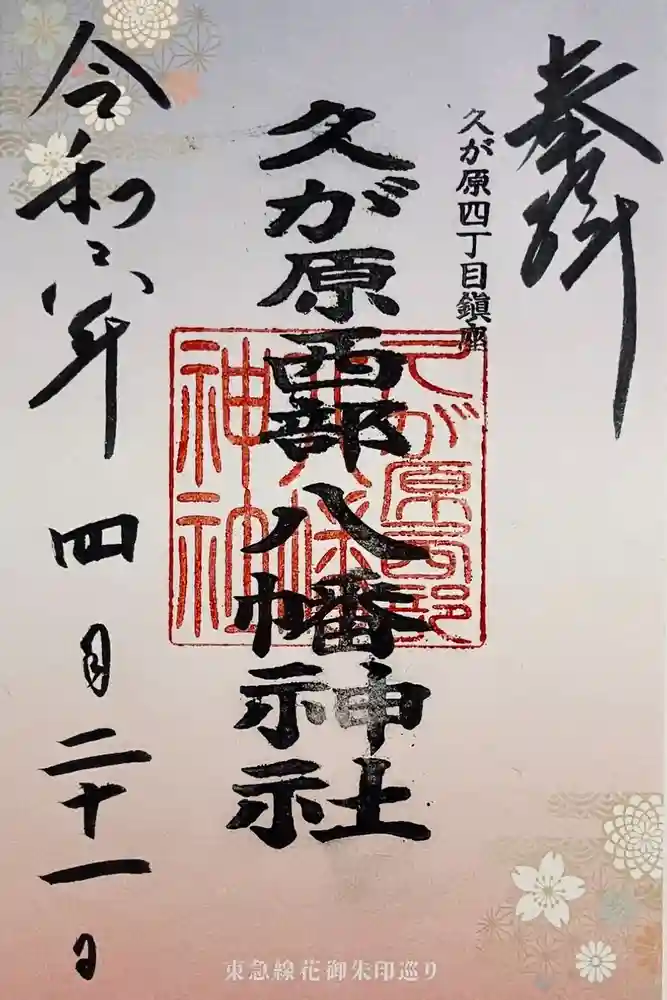 奉拝
久が原四丁目鎮座
久が原西部八幡神社
久が原西部
八幡
神社
令和六年
四月二十一日
東急線花御朱印巡り